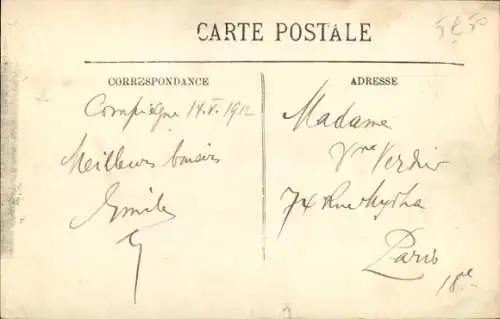 CARTE POSTALE
5€50
CORRESPONDANCE
ADRESSE
Compiègne 14.V.1912
Meilleurs baisers
Emile
Madame
Vve Verdier
74 Rue Myrha
Paris
18e